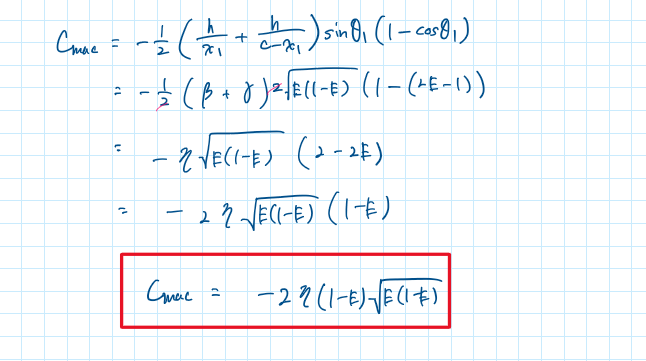 C_mac = -1/2 ( h/x₁ + h/(c-x₁) ) sinθ₁ (1-cosθ₁)
= -1/2 (β + γ) 2√(E(1-E)) (1-(2E-1))
= -η √(E(1-E)) (2-2E)
= - 2 η √(E(1-E)) (1-E)
C_mac = -2η(1-E)√(E(1-E))